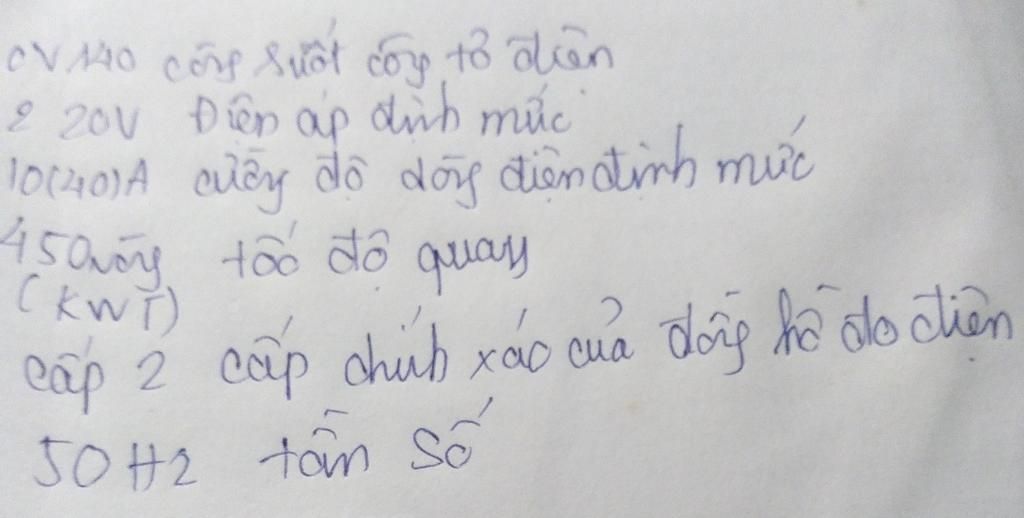 CV140 công suốt công tơ điện
220V Điện áp định mức
10(40)A cường độ dòng điện định mức
450 vòng tốc độ quay
(KWT)
cấp 2 cấp chính xác của đồng hồ đo điện
50 H2 tần số